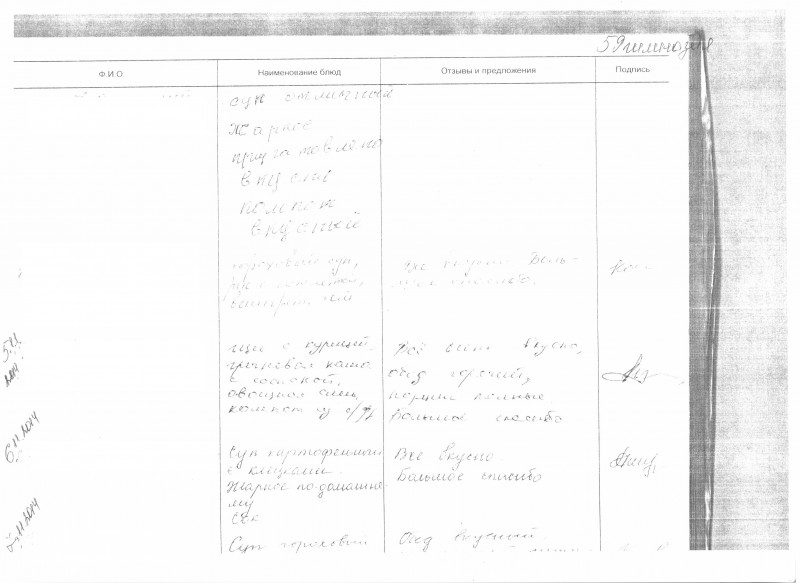 59 гимназия
Ф.И.О. Наименование блюд Отзывы и предложения Подпись
суп отличный
Жаркое
приготовлено
вкусно
компот
вкусный
гороховый суп,
Все вкусно. Боль-
шое спасибо.
щи с курицей,
гречневая каша
с сосиской,
овощной салат,
компот из с/ф
Всё очень вкусно,
обед горячий,
порции полные.
Большое спасибо
6.11.2014
Суп картофельный
с клецками.
Жаркое по-домашне-
му
Сок
Все вкусно
Большое спасибо
11.2014
Суп гороховый
Обед вкусный.